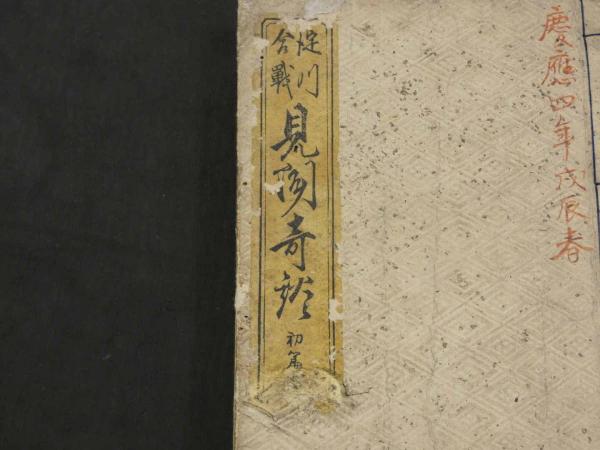 慶應四年戊辰春
淀川
合戰
見聞奇談
初篇